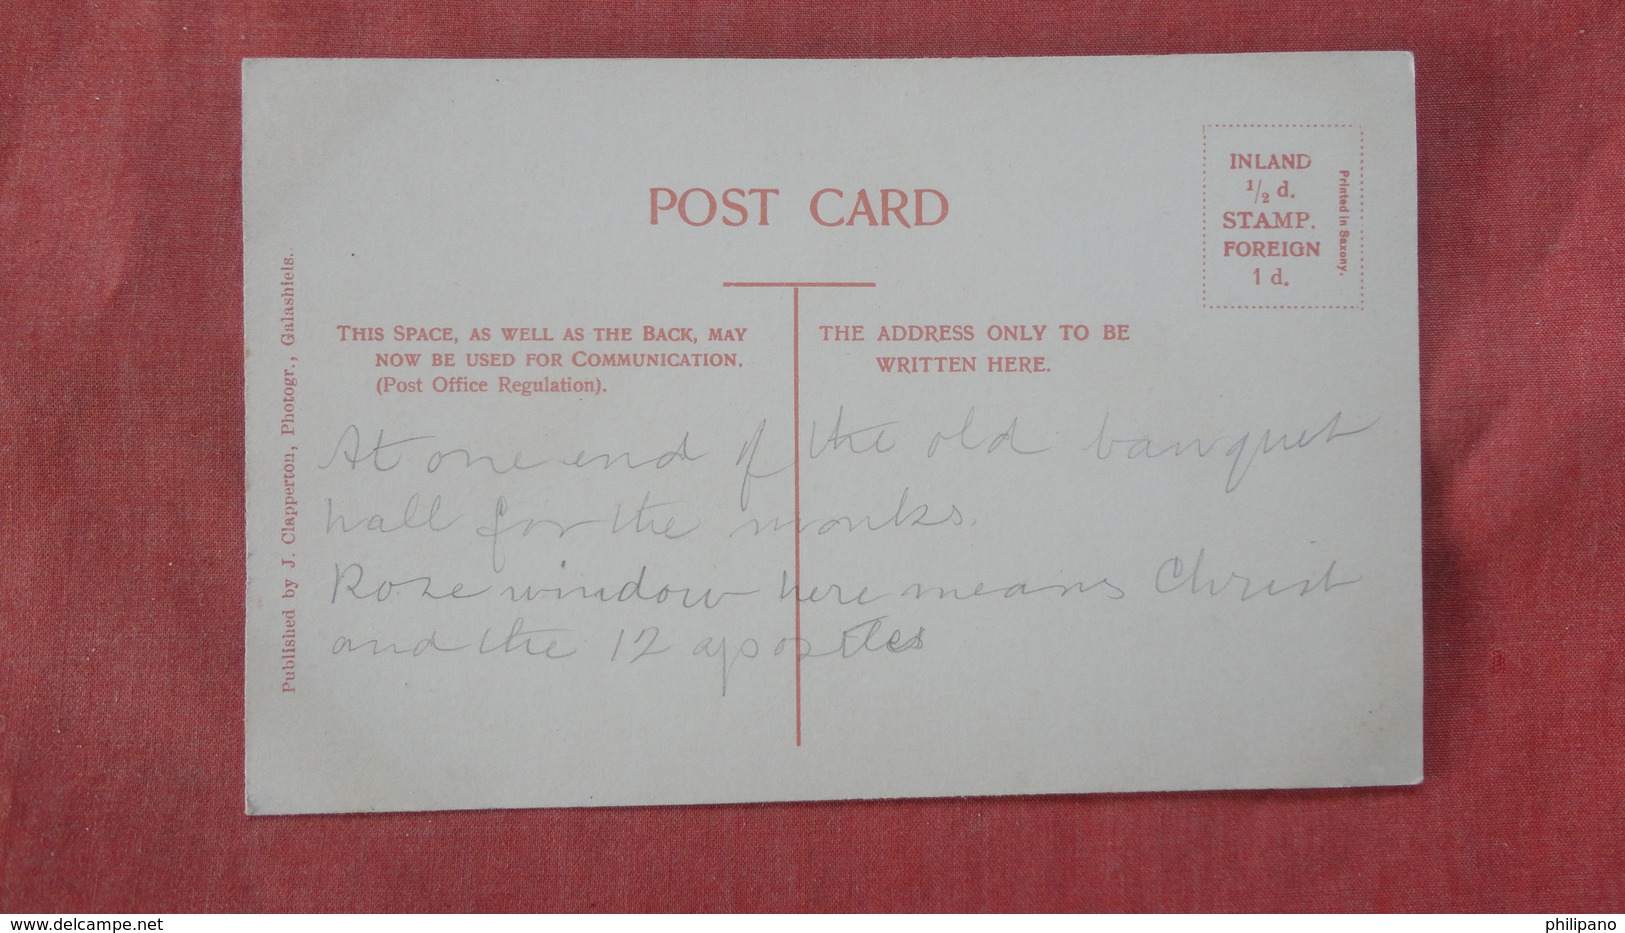 POST CARD
INLAND
1/2 d.
STAMP.
FOREIGN
1 d.
Printed in Saxony.
THIS SPACE, AS WELL AS THE BACK, MAY
NOW BE USED FOR COMMUNICATION.
(Post Office Regulation).
THE ADDRESS ONLY TO BE
WRITTEN HERE.
Published by J. Clapperton, Photogr., Galashiels.
At one end of the old banquet
hall for the monks.
Rose window here means Christ
and the 12 apostles
delcampe.net
philipano